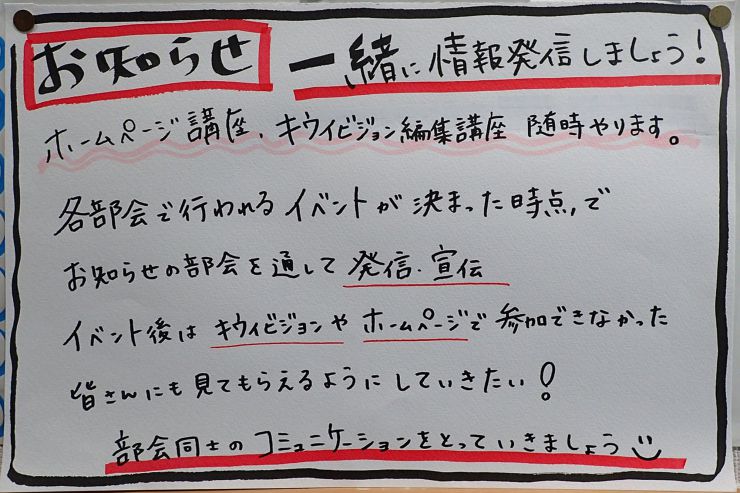 お知らせ 一緒に情報発信しましょう!
ホームページ講座、キウイビジョン編集講座 随時やります。
各部会で行われるイベントが決まった時点,で
お知らせの部会を通して発信・宣伝
イベント後はキウィビジョンやホームページで参加できなかった
皆さんにも見てもらえるようにしていきたい!
部会同士のコミュニケーションをとっていきましょう